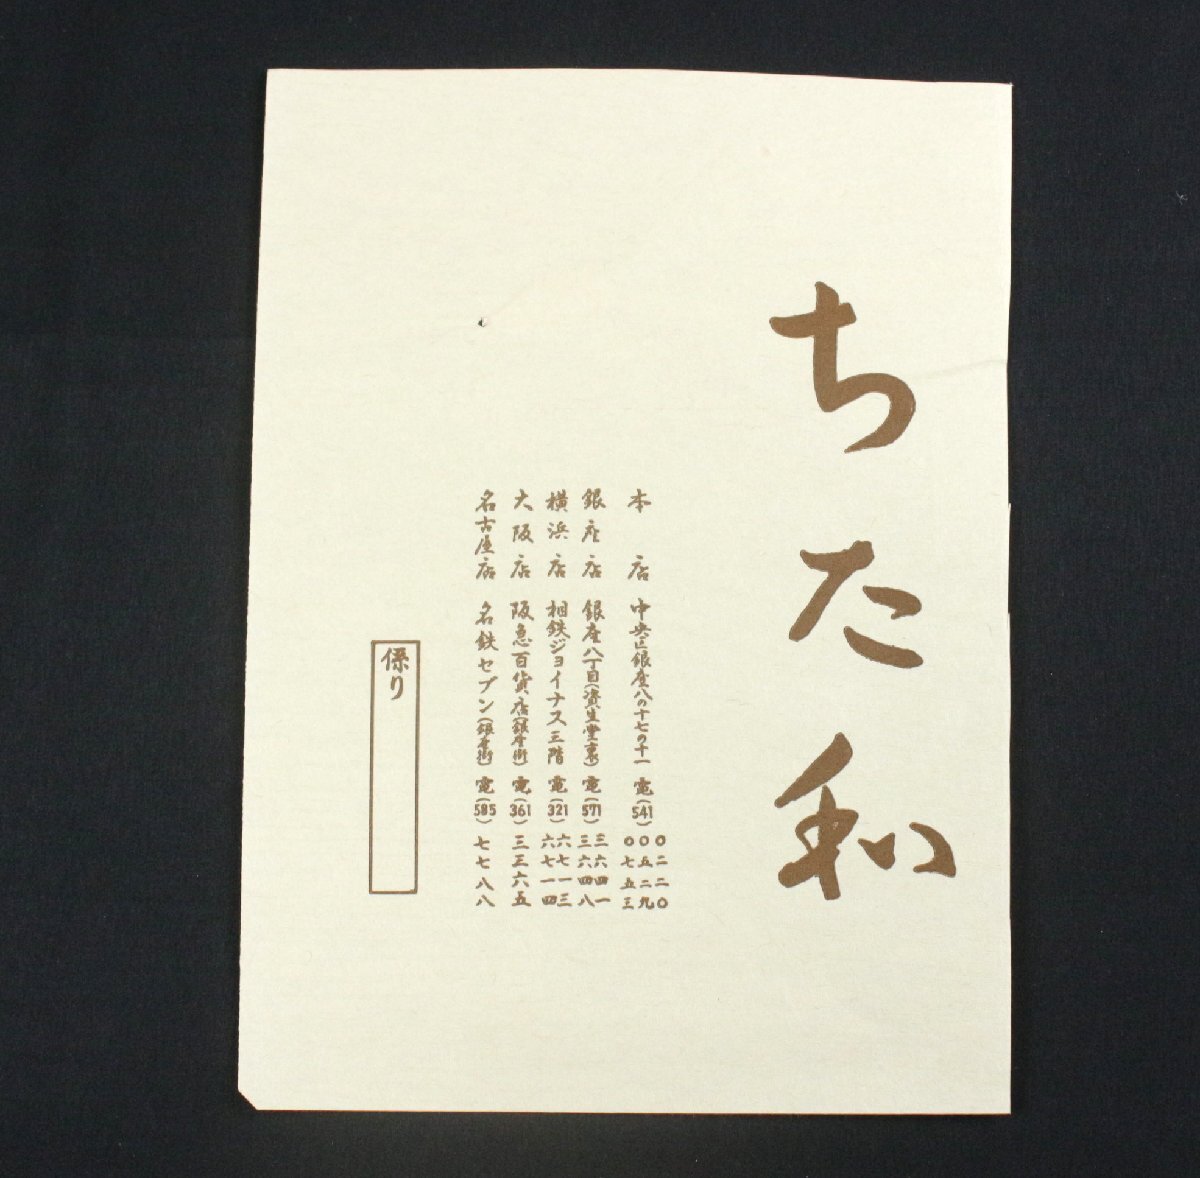 ちた和
本店 中央区銀座八の十七の十一 電(541) 〇二二〇
〇五二九
〇七五三
銀座店 銀座八丁目(資生堂裏) 電(571) 三六四一
三六四八
横浜店 相鉄ジョイナス三階 電(321) 六七一三
六七一四
大阪店 阪急百貨店(銀座街) 電(361) 三三六五
名古屋店 名鉄セブン(銀座街) 電(585) 七七八八
係り